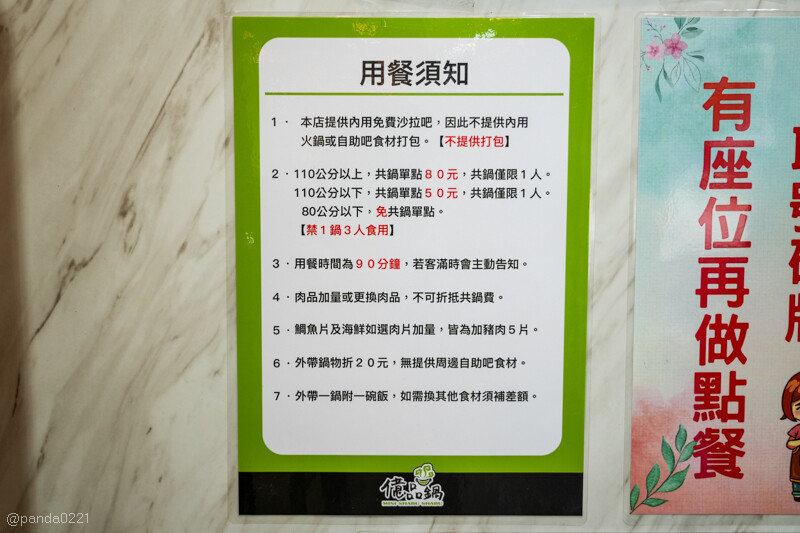 用餐須知
1． 本店提供內用免費沙拉吧，因此不提供內用
火鍋或自助吧食材打包。【不提供打包】
2．110公分以上，共鍋單點８０元，共鍋僅限１人。
110公分以下，共鍋單點５０元，共鍋僅限１人。
80公分以下，免共鍋單點。
【禁１鍋３人食用】
3．用餐時間為９０分鐘，若客滿時會主動告知。
4．肉品加量或更換肉品，不可折抵共鍋費。
5．鯛魚片及海鮮如選肉片加量，皆為加豬肉５片。
6．外帶鍋物折２０元，無提供周邊自助吧食材。
7．外帶一鍋附一碗飯，如需換其他食材須補差額。
億品鍋
MINI SHABU SHABU
有座位再做點餐
@panda0221